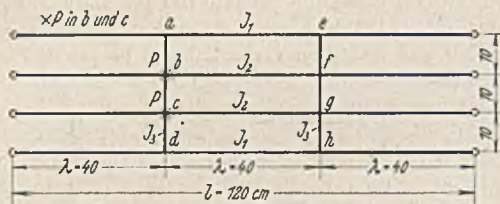 ×P in b und c
a J₁ e
P b J₂ f 10
P c J₂ g 10
J₃ d J₁ J₃ h 10
λ=40 λ=40 λ=40
l=120 cm